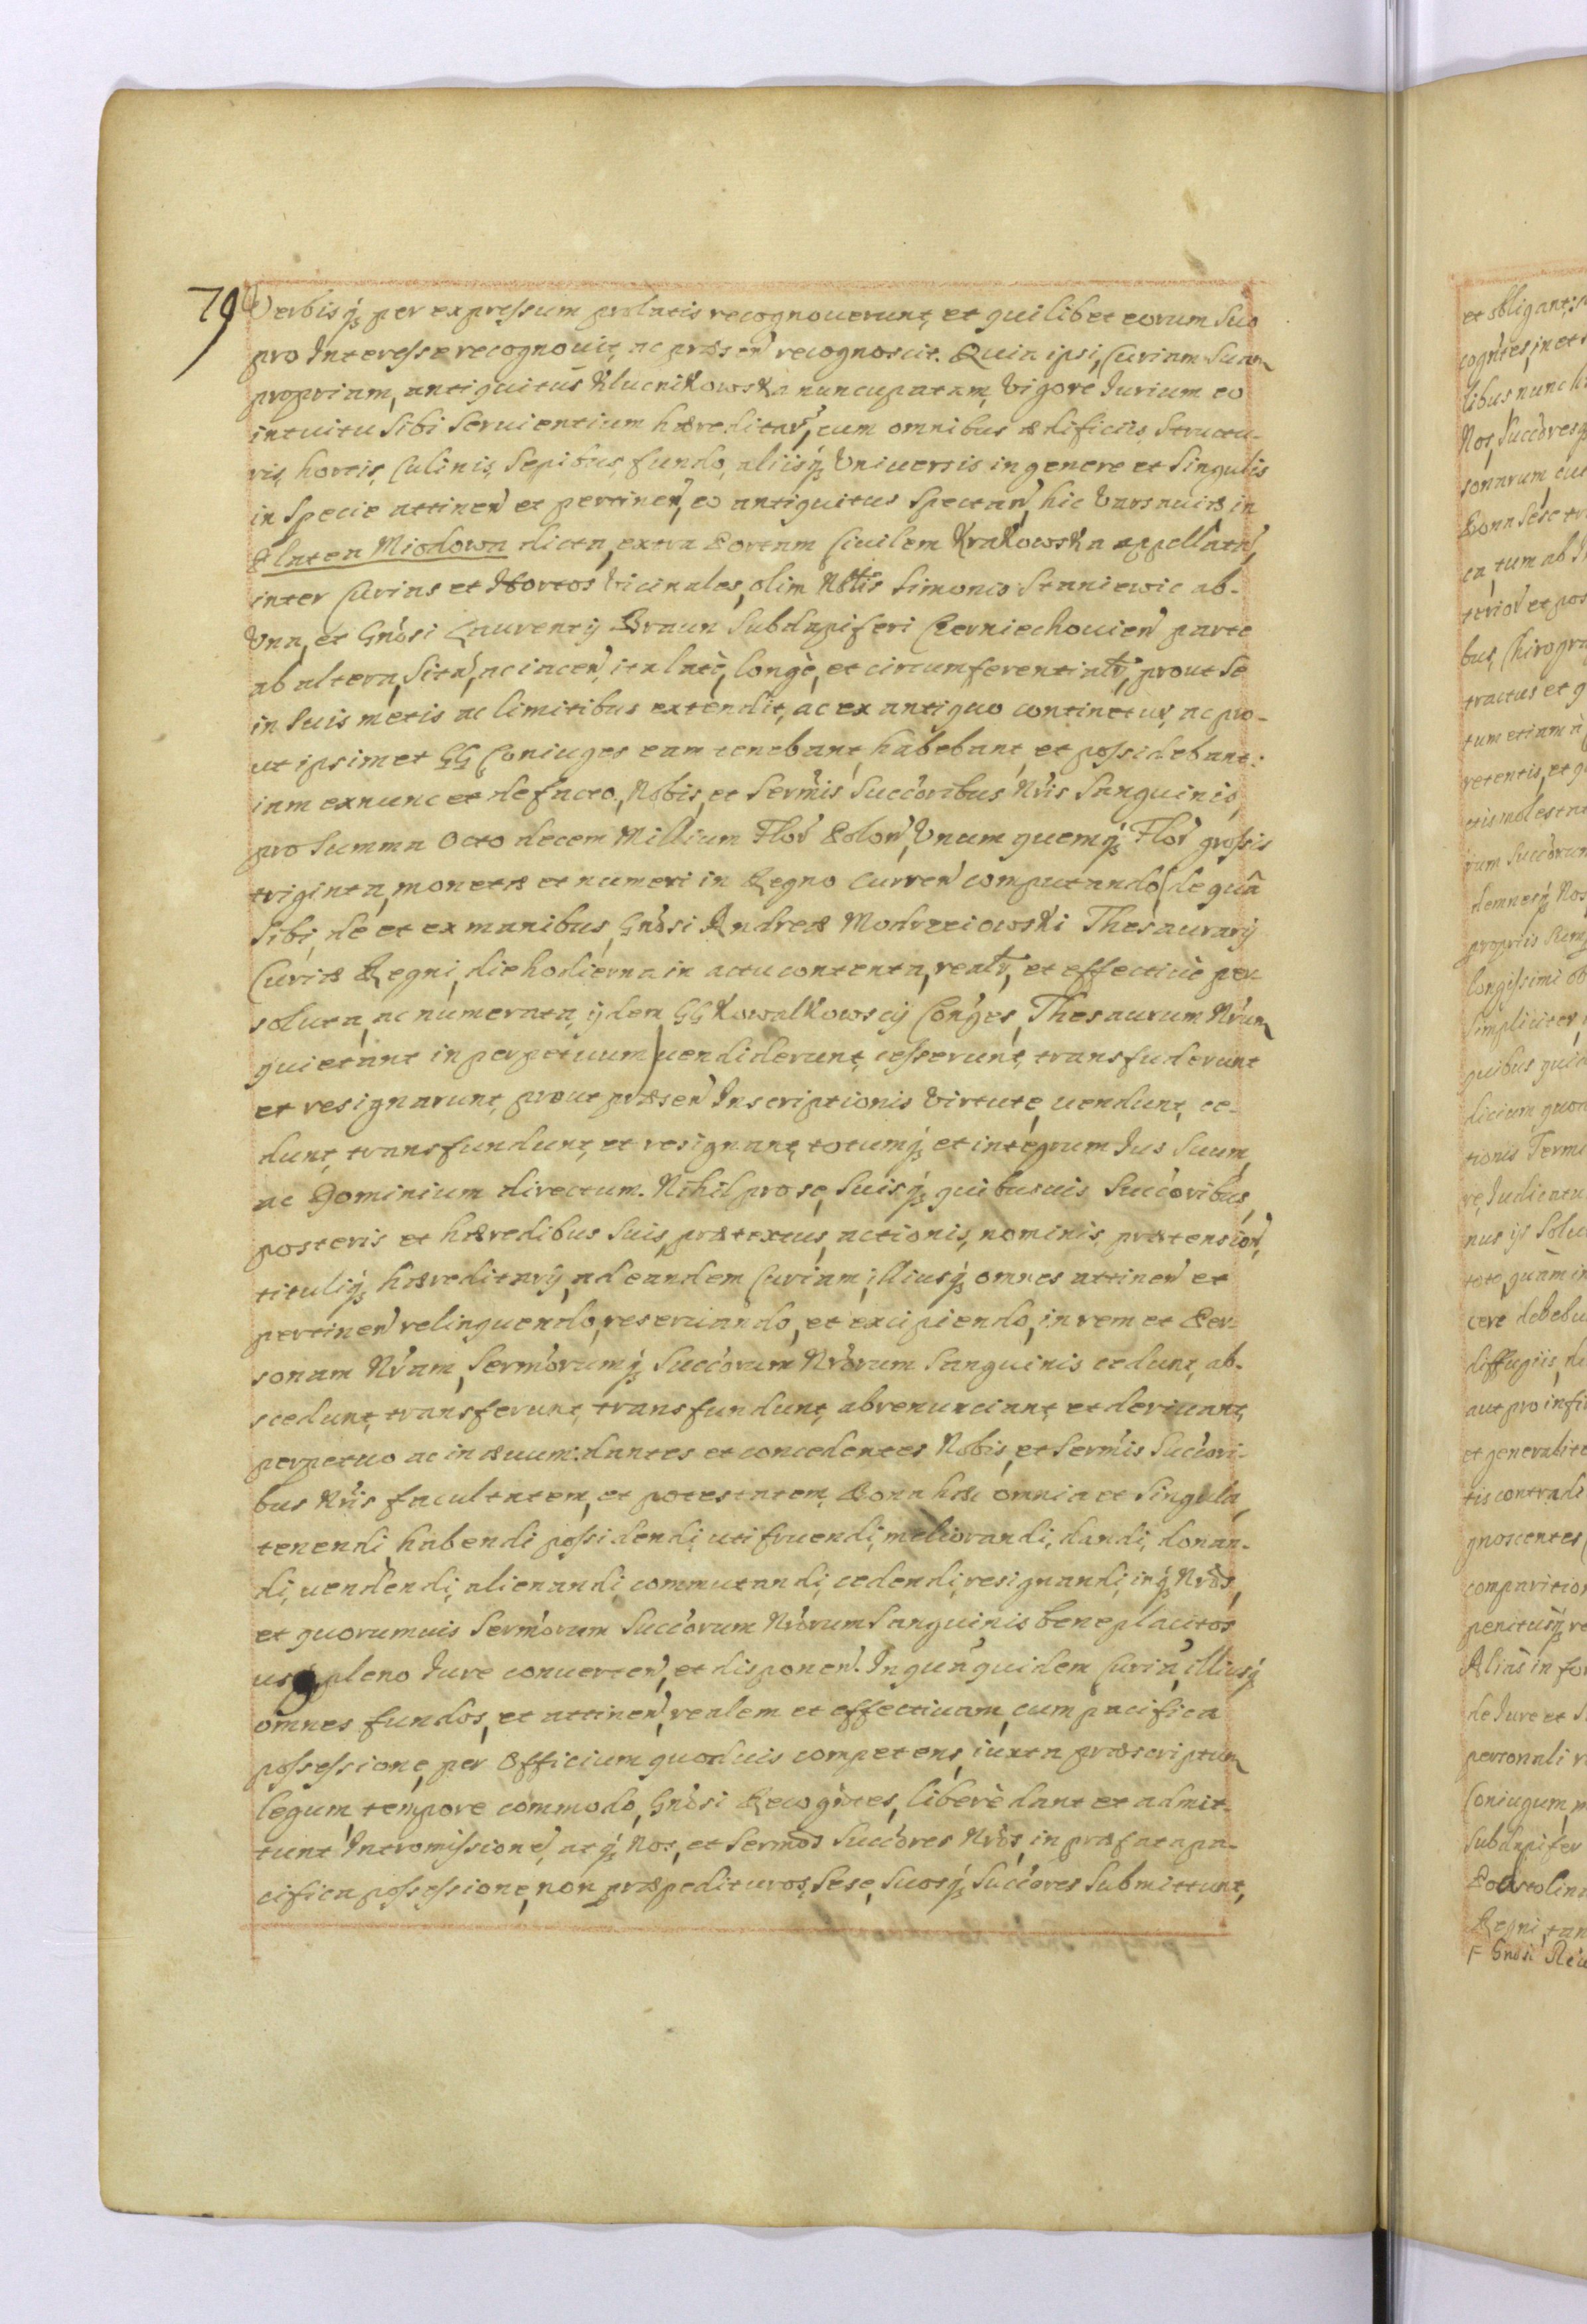 79
Verbisq́ꝫ per expressum prolatis recognouerunt, et quilibet eorum suo
pro Interesse recognouit, ac præsen̄ recognoscit. Quia ipsi, Curiam Suam
propriam, antiquitus Klucnikowska nuncupatam, vigore Iurium eo
intuitu sibi seruientium hæreditar̄, cum omnibus ædificiis, structu-
ris, hortis, Culinis, Sepibus, fundo, aliisq́ꝫ Vniuersis in genere et Singulis
in Specie attinen̄ et pertinen̄, eo antiquitus Spectan̄, hic Varsauiæ in
Platea Miodowa dicta, extra Portam Ciuilem Krakowska appellata,
inter Curias et Hortos vicinales, olim Nōtis Simonis Staniewic ab-
Vna, et Gn̄osi Laurentij Braun Subdapiferi Czerniechouien̄ parte
ab altera, Sitā, ac iacen̄, ita latè, longè, et circumferentialr̄, prout Se
in Suis metis ac limitibus extendit, ac ex antiquo continetur, ac pro-
ut ipsimet GG Coniuges eam tenebant, habebant, et possidebant:
iam exnunc et de facto, Nobis, et Serm̄is Succ̄oribus Nr̄is Sanguinis,
pro Summa Octodecem Millium Flor̄ Polon̄, Vnumquemq́ꝫ Flor̄ grossis
triginta, monetæ et numeri in Regno Curren̄ computando (de quâ
Sibi, de et ex manibus, Gn̄osi Andreæ Modrzeiowski Thesaurarij
Curiæ Regni, die hodierna in actu contenta, realr̄, et effectiuè per-
soluta, ac numerata, ijdem GG Kowalkowscÿ Con̄ges, Thesaurum Nr̄um
quietant in perpetuum) uendiderunt, cesserunt, transfuderunt
et resignarunt, prout præsen̄ Inscriptionis Virtute, uendunt, ce-
dunt, transfundunt, et resignant, totumq́ꝫ et integrum Ius Suum,
ac Dominium directum. Nihil pro se, Suisq́ꝫ quibusuis Succ̄oribus,
posteris et hæredibus Suis, prætextus, actionis, nominis, prætension̄,
tituliq́ꝫ hæreditarij, ad eandem Curiam, illiusq́ꝫ omnes attinen̄ et
pertinen̄ relinquendo, reseruando, et excipiendo, in rem et Per-
sonam Nr̄am, Serm̄orumq́ꝫ Succ̄orum Nr̄orum Sanguinis cedunt, ab-
scedunt, transferunt, transfundunt, abrenunciant, et deriuant,
perpetuo ac in æuum: dantes et concedentes Nobis, et Serm̄is Succ̄ori-
bus Nr̄is facultatem, et potestatem, Bona hæc omnia et Singula,
tenendi, habendi possidendi, uti fruendi, meliorandi, dandi, donan-
di, uendendi, alienandi, commutandi, cedendi, resignandi, inq́ꝫ Nr̄os,
et quorumuis Serm̄orum Succ̄orum Nr̄orum Sanguinis beneplacitos
usus pleno Iure conuerten̄, et disponen̄. In quā quidem Curiā, illiusq́ꝫ
omnes fundos, et attinen̄, realem et effectiuam, cum pacifica
possessione, per Officium quoduis competens, iuxta præscriptum
legum, tempore commodo, Gn̄osi Recogn̄tes, liberè dant et admit-
tunt Intromissionē, atq́ꝫ Nos, et Serm̄os Succ̄ores Nr̄os, in præfata pa-
cifica possessione, non præpedituros, Sese, Suosq́ꝫ Succ̄ores Submittunt,